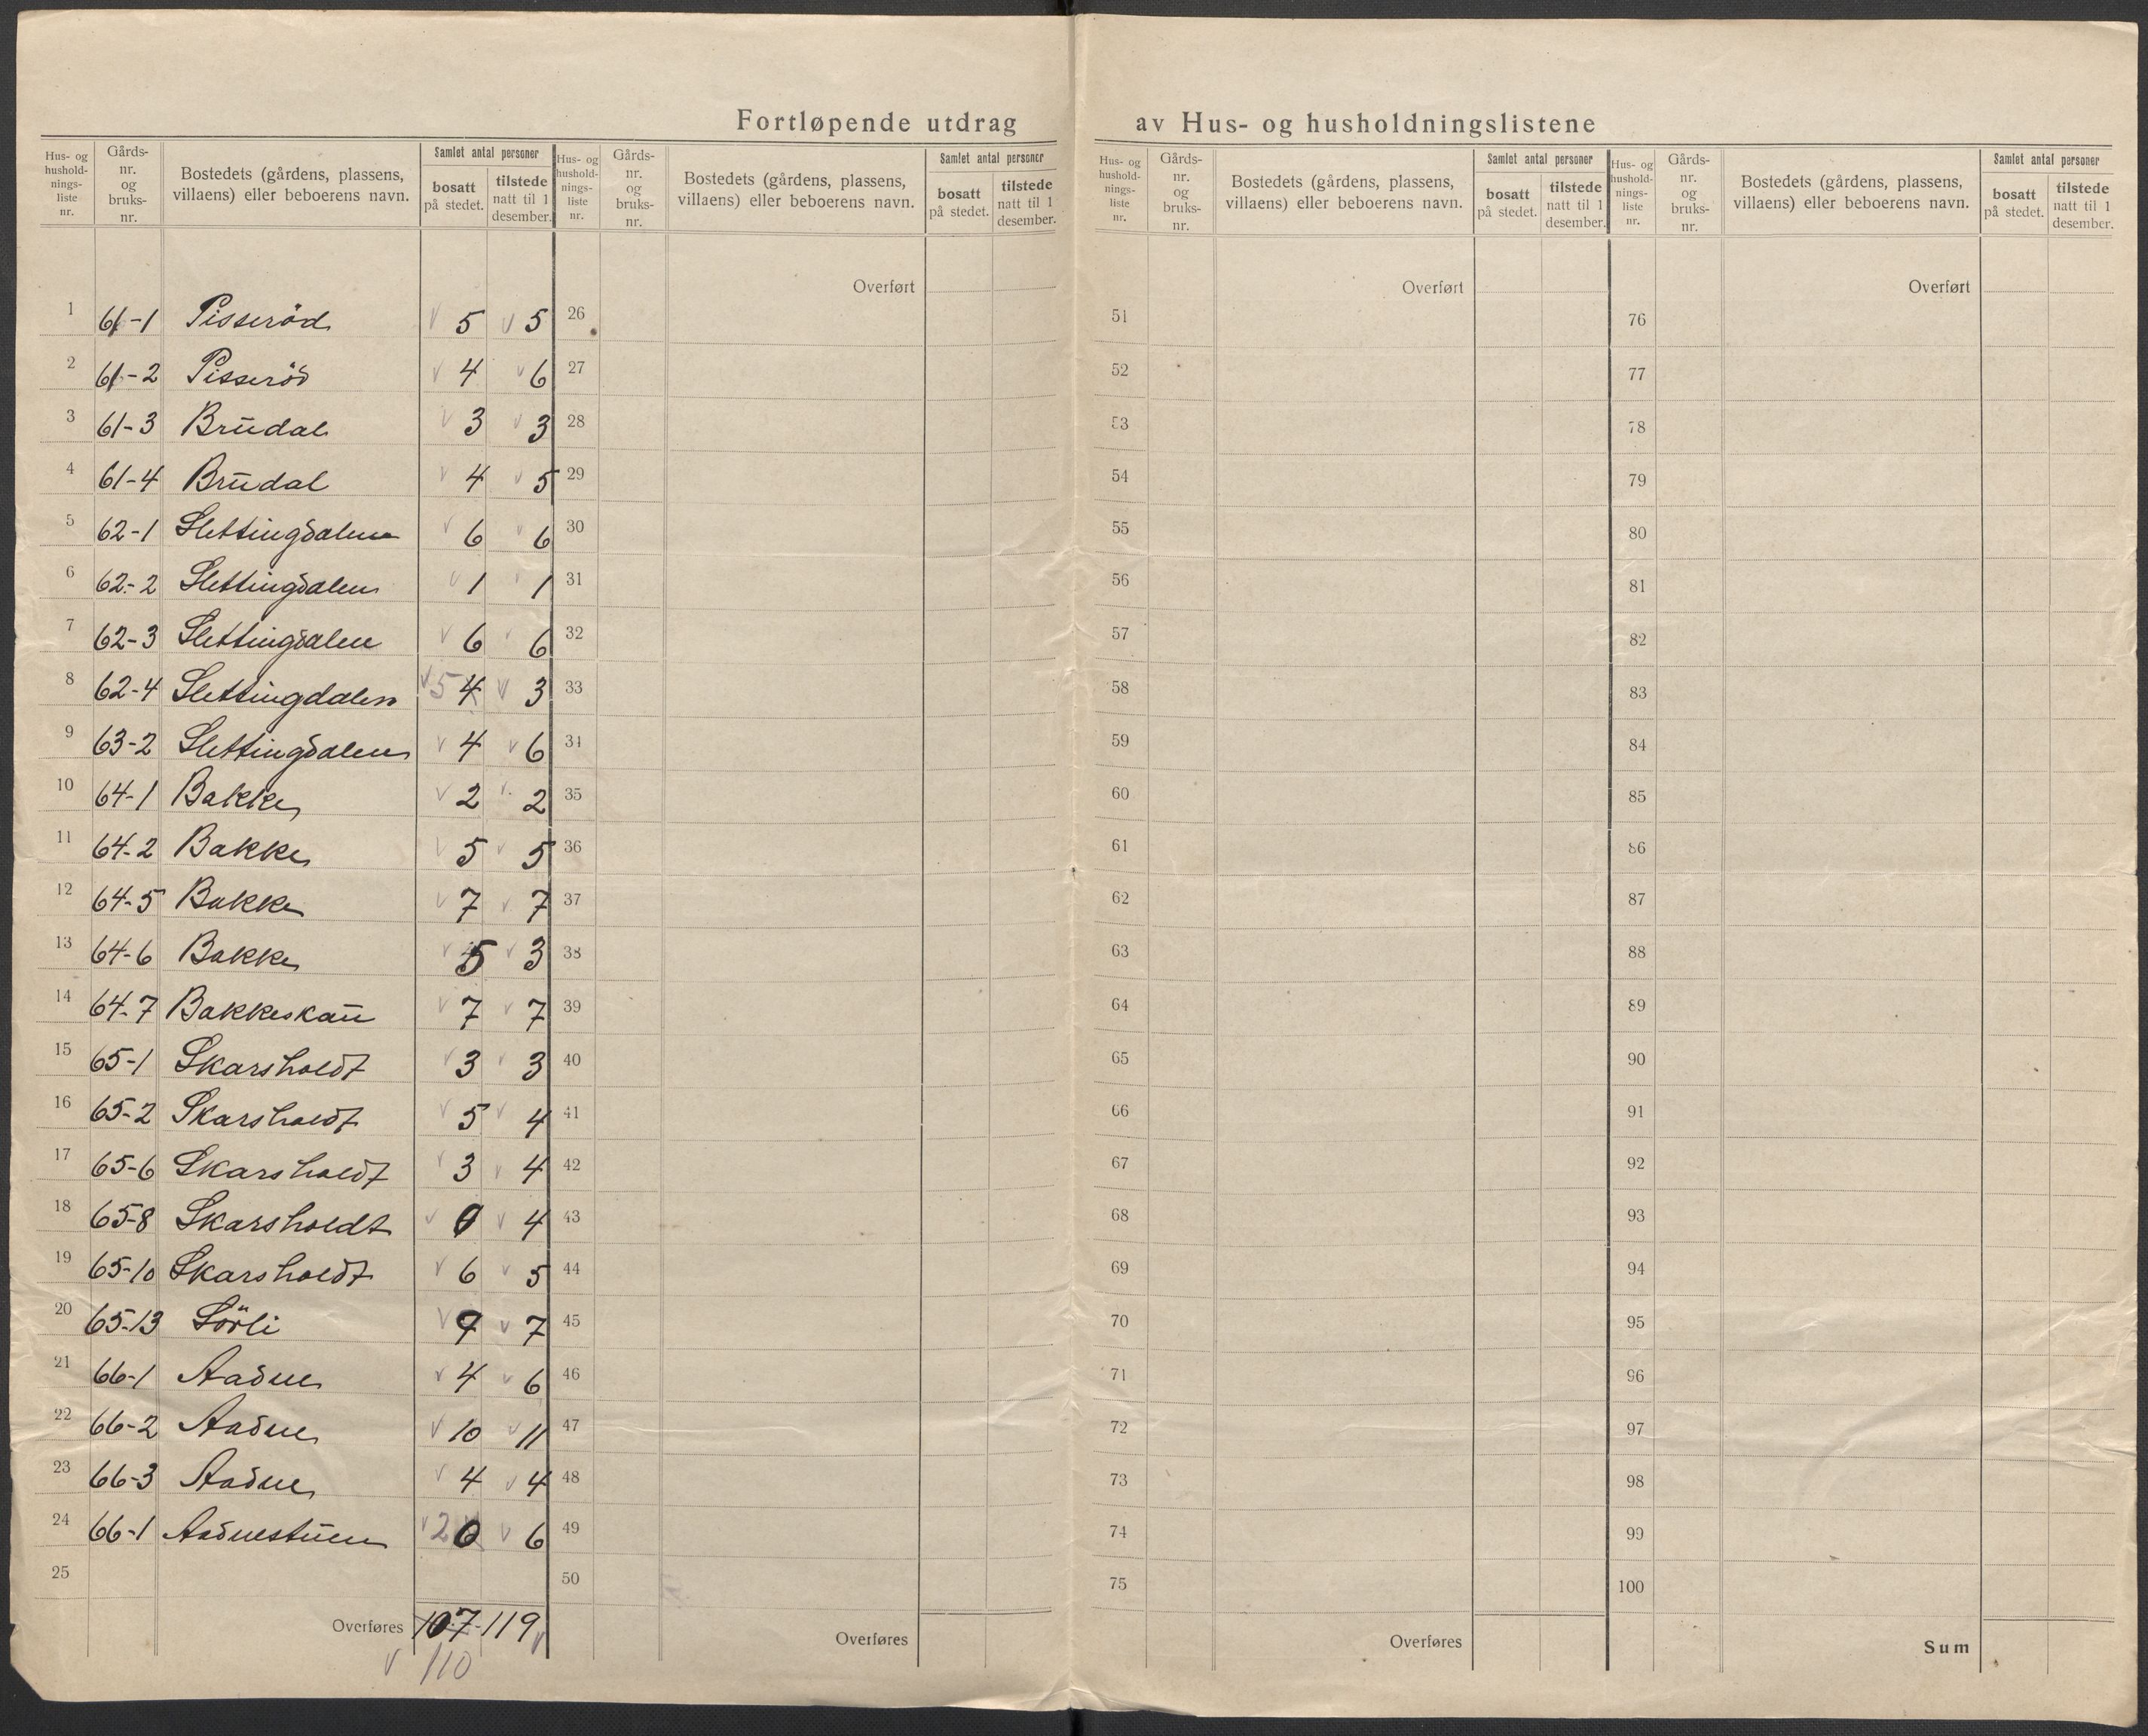 Fortløpende utdrag av Hus- og husholdningslistene
Hus- og hushold- nings- liste nr. | Gårds- nr. og bruks- nr. | Bostedets (gårdens, plassens, villaens) eller beboerens navn. | Samlet antal personer | bosatt på stedet. | tilstede natt til 1 desember.
Hus- og hushold- nings- liste nr. | Gårds- nr. og bruks- nr. | Bostedets (gårdens, plassens, villaens) eller beboerens navn. | Samlet antal personer | bosatt på stedet. | tilstede natt til 1 desember.
Hus- og hushold- nings- liste nr. | Gårds- nr. og bruks- nr. | Bostedets (gårdens, plassens, villaens) eller beboerens navn. | Samlet antal personer | bosatt på stedet. | tilstede natt til 1 desember.
Hus- og hushold- nings- liste nr. | Gårds- nr. og bruks- nr. | Bostedets (gårdens, plassens, villaens) eller beboerens navn. | Samlet antal personer | bosatt på stedet. | tilstede natt til 1 desember.
Overført Overført Overført
1 61-1 Pisseröd 5 5 26 51 76
2 61-2 Pisseröd 4 6 27 52 77
3 61-3 Brūdal 3 3 28 53 78
4 61-4 Brūdal 4 5 29 54 79
5 62-1 Slettingdalen 6 6 30 55 80
6 62-2 Slettingdalen 1 1 31 56 81
7 62-3 Slettingdalen 6 6 32 57 82
8 62-4 Slettingdalen 5 4 3 33 58 83
9 63-2 Slettingdalen 4 6 34 59 84
10 64-1 Bakke 2 2 35 60 85
11 64-2 Bakke 5 5 36 61 86
12 64-5 Bakke 7 7 37 62 87
13 64-6 Bakke 5 3 38 63 88
14 64-7 Bakkeskaū 7 7 39 64 89
15 65-1 Skarsholdt 3 3 40 65 90
16 65-2 Skarsholdt 5 4 41 66 91
17 65-6 Skarsholdt 3 4 42 67 92
18 65-8 Skarsholdt 4 43 68 93
19 65-10 Skarsholdt 6 5 44 69 94
20 65-13 Sörli 9 7 45 70 95
21 66-1 Aadne 4 6 46 71 96
22 66-2 Aadne 10 11 47 72 97
23 66-3 Aadne 4 4 48 73 98
24 66-1 Aadnestuen 2 0 6 49 74 99
25 50 75 100
Overføres 107-119 Overføres Overføres Sum
110